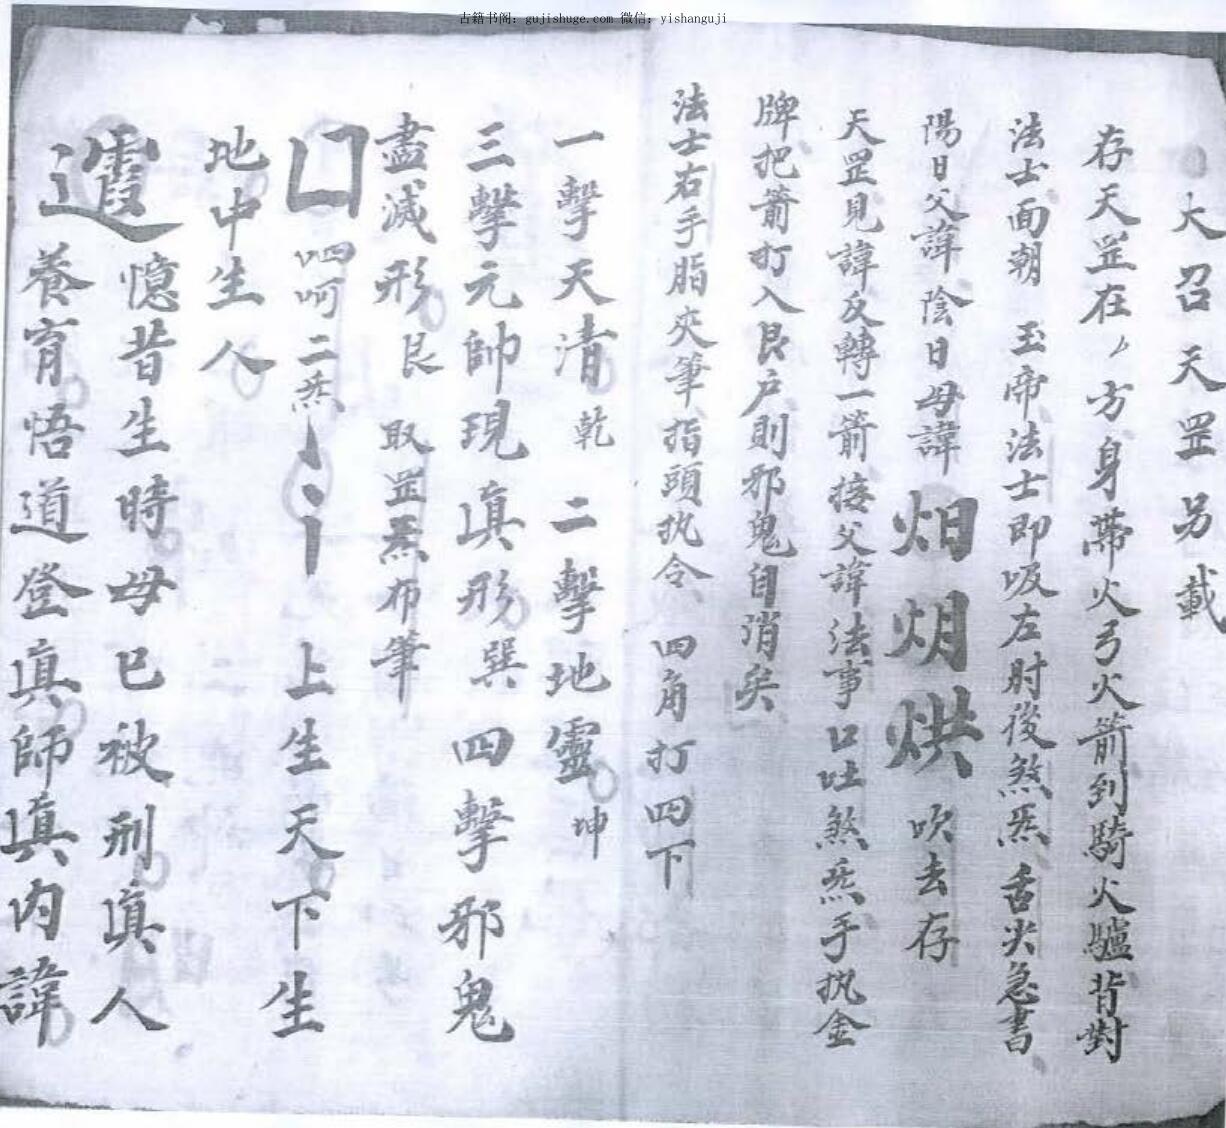 古籍书阁：gujishuge.com 微信：yishanguji
大召天罡另載
存天罡在，方身帶火弓火箭到騎火驢背對
法士面朝　玉帝法士即吸左肘後煞炁舌尖急書
陽日父諱陰日母諱　吹去存
天罡見諱反轉一箭接父諱法事口吐煞炁手执金
牌把箭打入艮户則邪鬼自消矣
法士右手脂夾筆指頭执令　四角打四下
一擊天清乾　二擊地靈坤
三擊元帥現真形巽　四擊邪鬼
盡滅形艮　取罡炁布筆
呬呵二炁　上生天下生
地中生人
憶昔生時母已被刑真人
養育悟道登真師真内諱